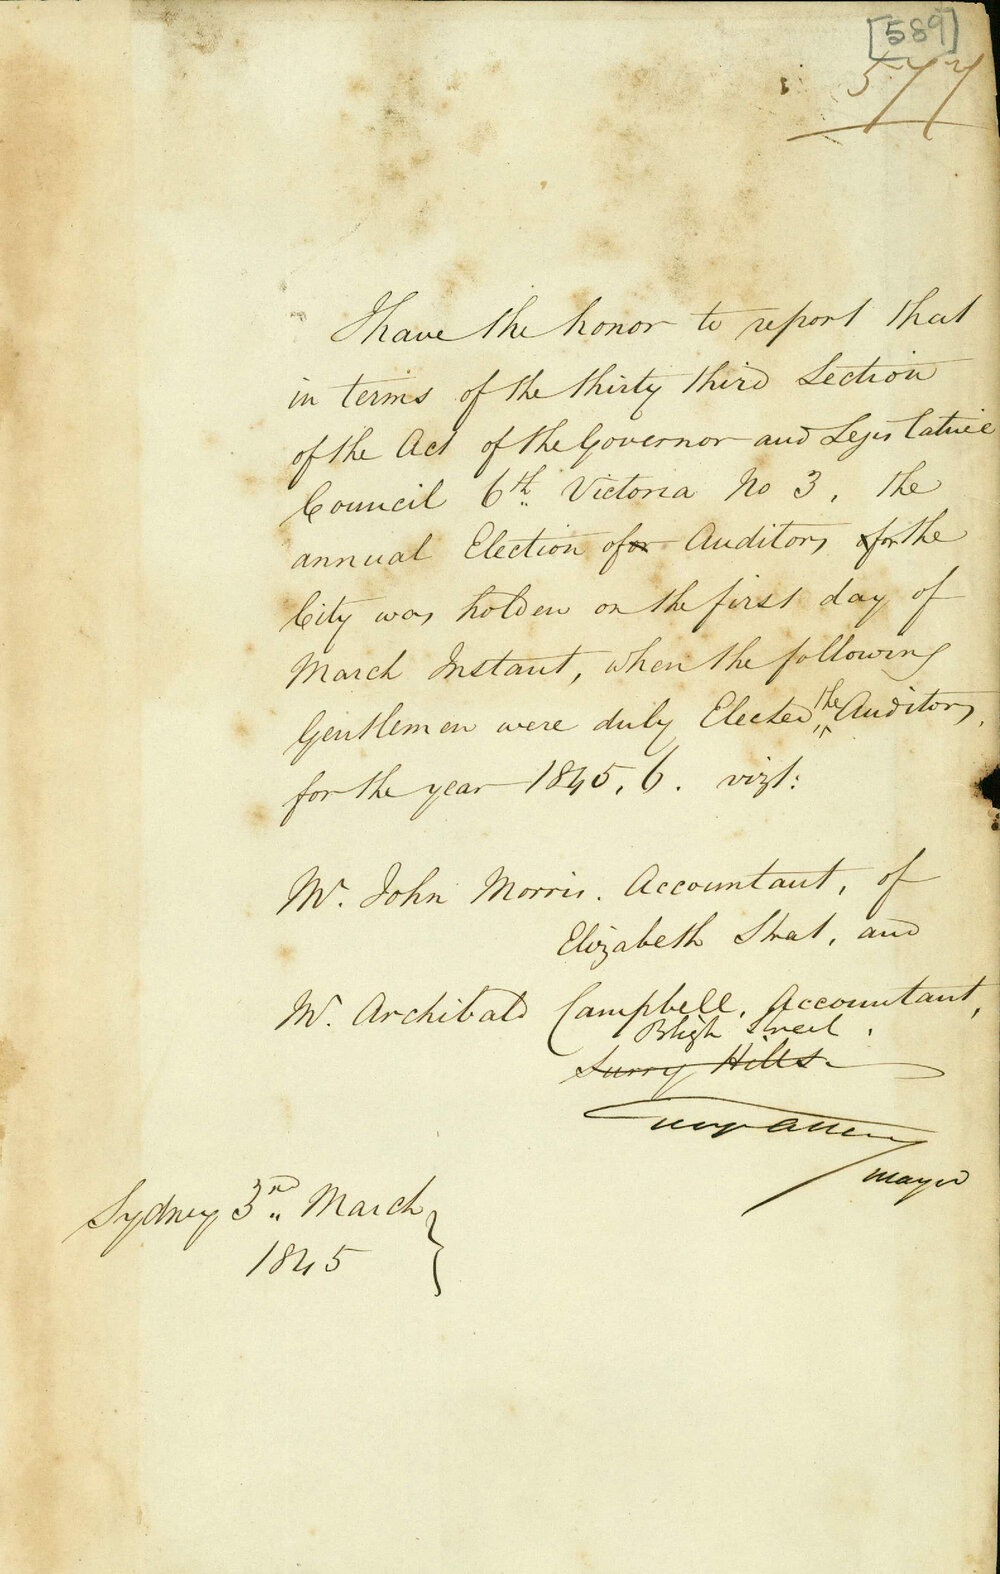 [589]
577
I have the honor to report that
in terms of the thirty third Section
of the Act of the Governor and Legislative
Council 6th Victoria No 3, the
annual Election of Auditors for the
City was holden on the first day of
March Instant, when the following
Gentlemen were duly Elected the Auditors,
for the year 1845, 6. vizt:
Mr. John Morris. Accountant, of
Elizabeth Street, and
Mr. Archibald Campbell, Accountant,
Bligh Street.
Surry Hills.
Geo Allen
Mayor
Sydney 3rd March
1845